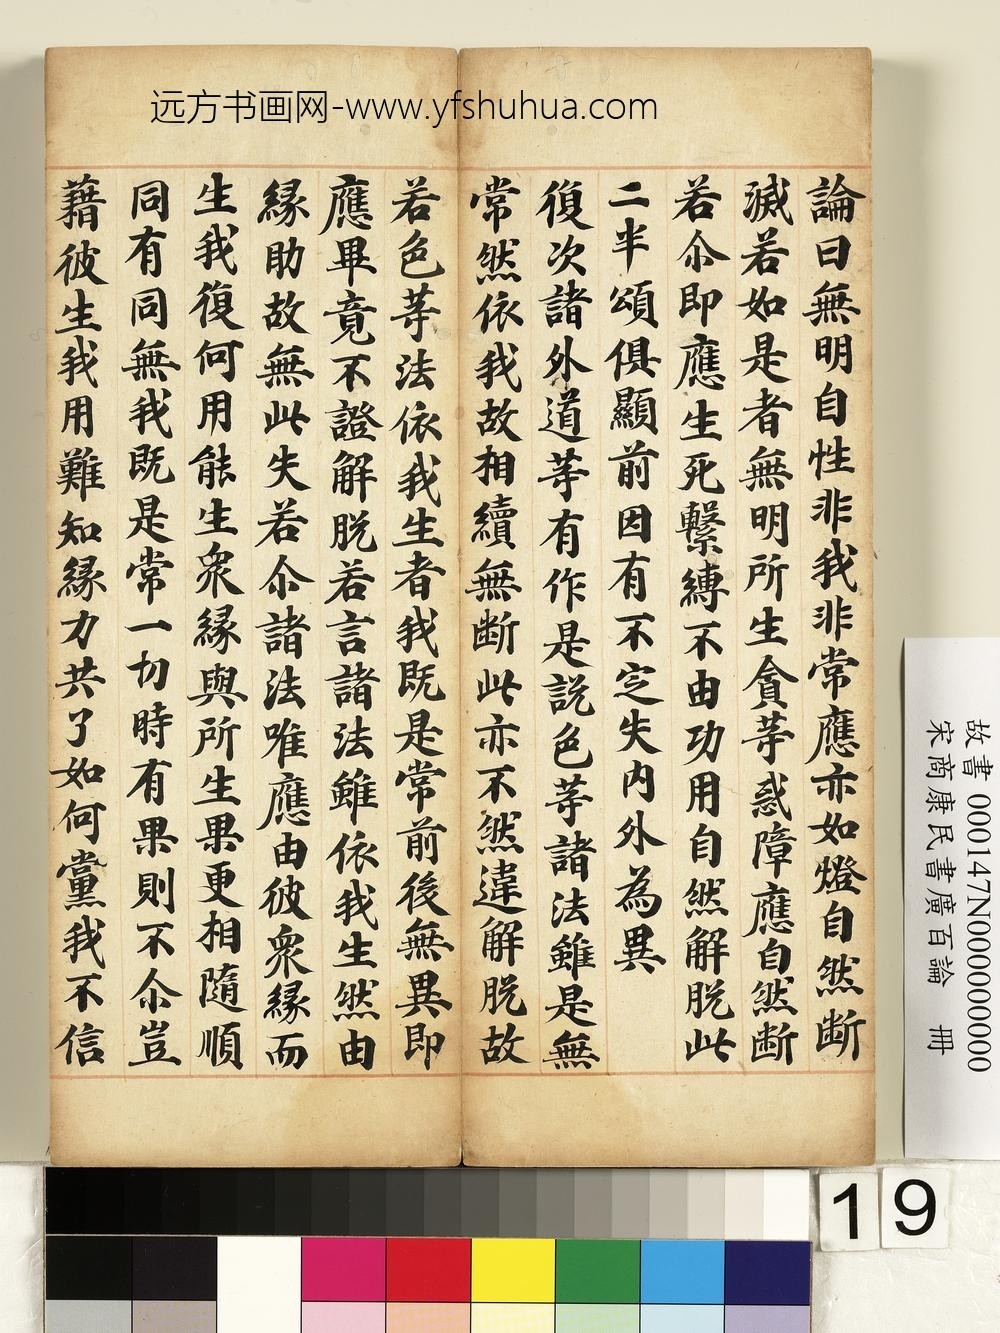 远方书画网-www.yfshuhua.com
論曰無明自性非我非常應亦如燈自然断
滅若如是者無明所生貪等惑障應自然断
若尒即應生死繫縛不由功用自然解脱此
二半頌俱顯前因有不定失内外為異
復次諸外道等有作是説色等諸法雖是無
常然依我故相續無断此亦不然違解脱故
若色等法依我生者我既是常前後無異即
應畢竟不證解脱若言諸法雖依我生然由
緣助故無此失若尒諸法唯應由彼衆緣而
生我復何用能生衆緣與所生果更相隨順
同有同無我既是常一切時有果則不尒豈
藉彼生我用難知緣力共了如何黨我不信
故書 000147N000000000
宋商康民書廣百論 冊
19